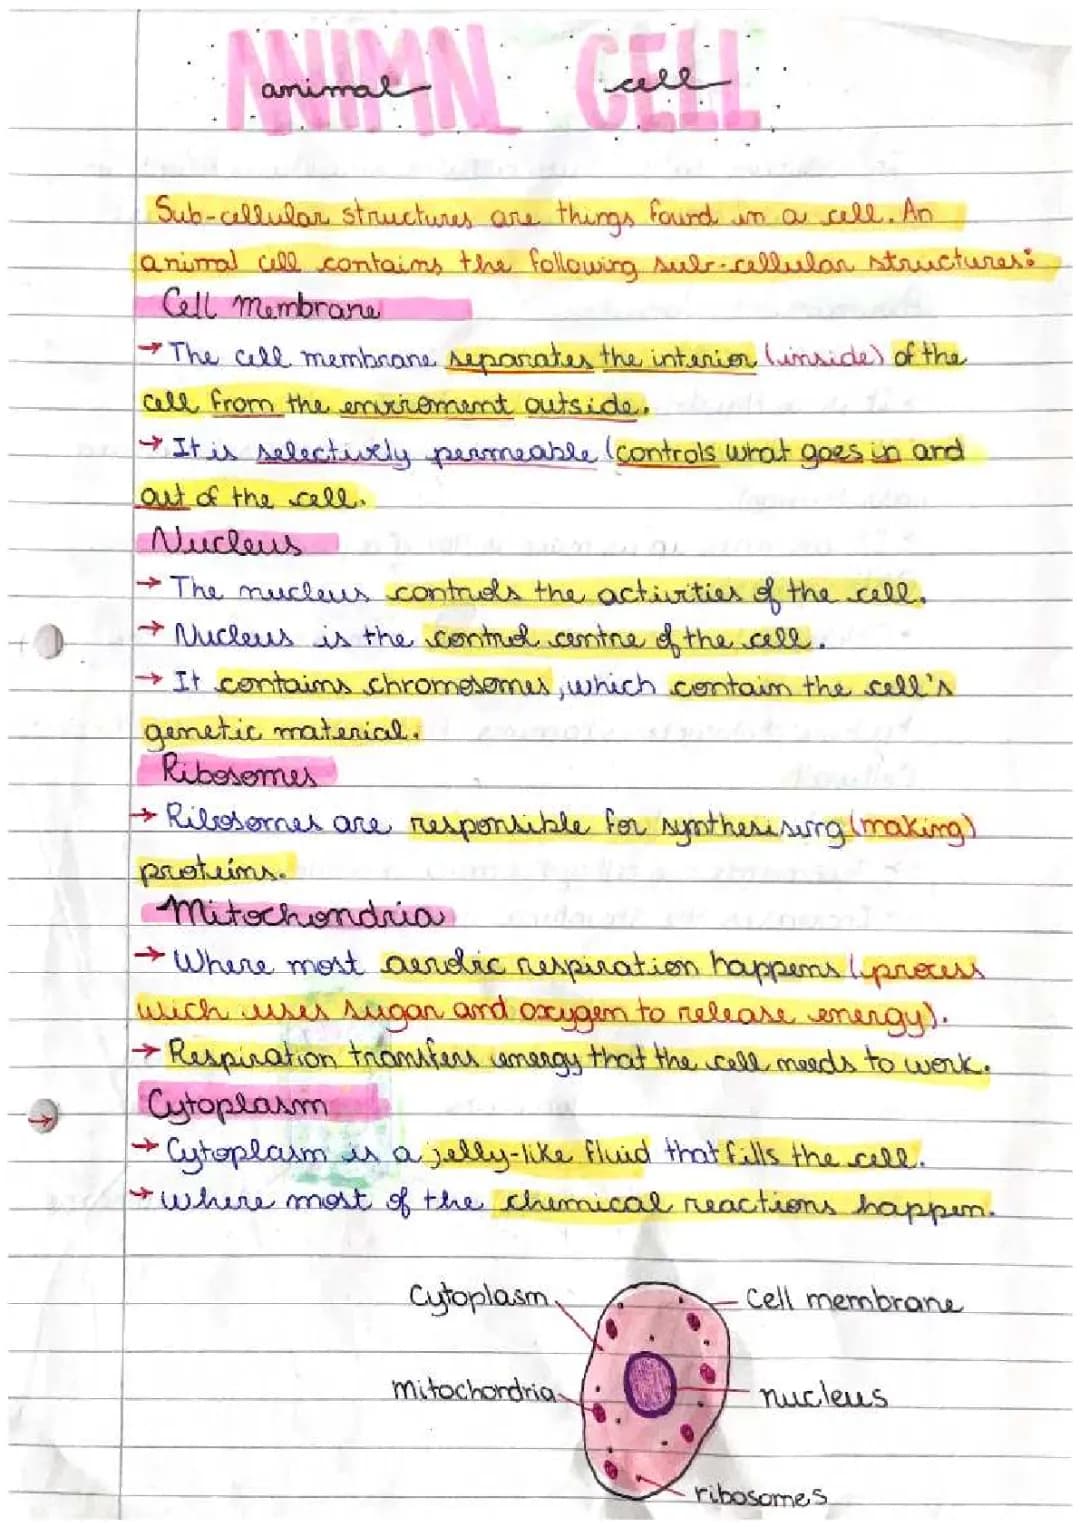 ANIMN CELL
animal cell
Sub-cellular structures are things found in a cell. An
animal cell contains the following sub-cellular structures:
Cell Membrane
→ The cell membrane separates the interior (inside) of the
cell from the enviroment outside.
→ It is selectively permeable (controls what goes in and
out of the cell.
Nucleus
→ The nucleus controls the activities of the cell.
→ Nucleus is the control centre of the cell.
→ It contains chromosomes, which contain the cell's
genetic material.
Ribosomes
→ Ribosomes are responsible for synthesising (making)
proteins.
Mitochondria
→ Where most aerobic respiration happens (process
wich uses sugar and oxygen to release energy).
→ Respiration transfers energy that the cell needs to work.
Cytoplasm
→ Cytoplasm is a jelly-like fluid that fills the cell.
→ Where most of the chemical reactions happen.
Cytoplasm
Cell membrane
mitochondria
nucleus
ribosomes